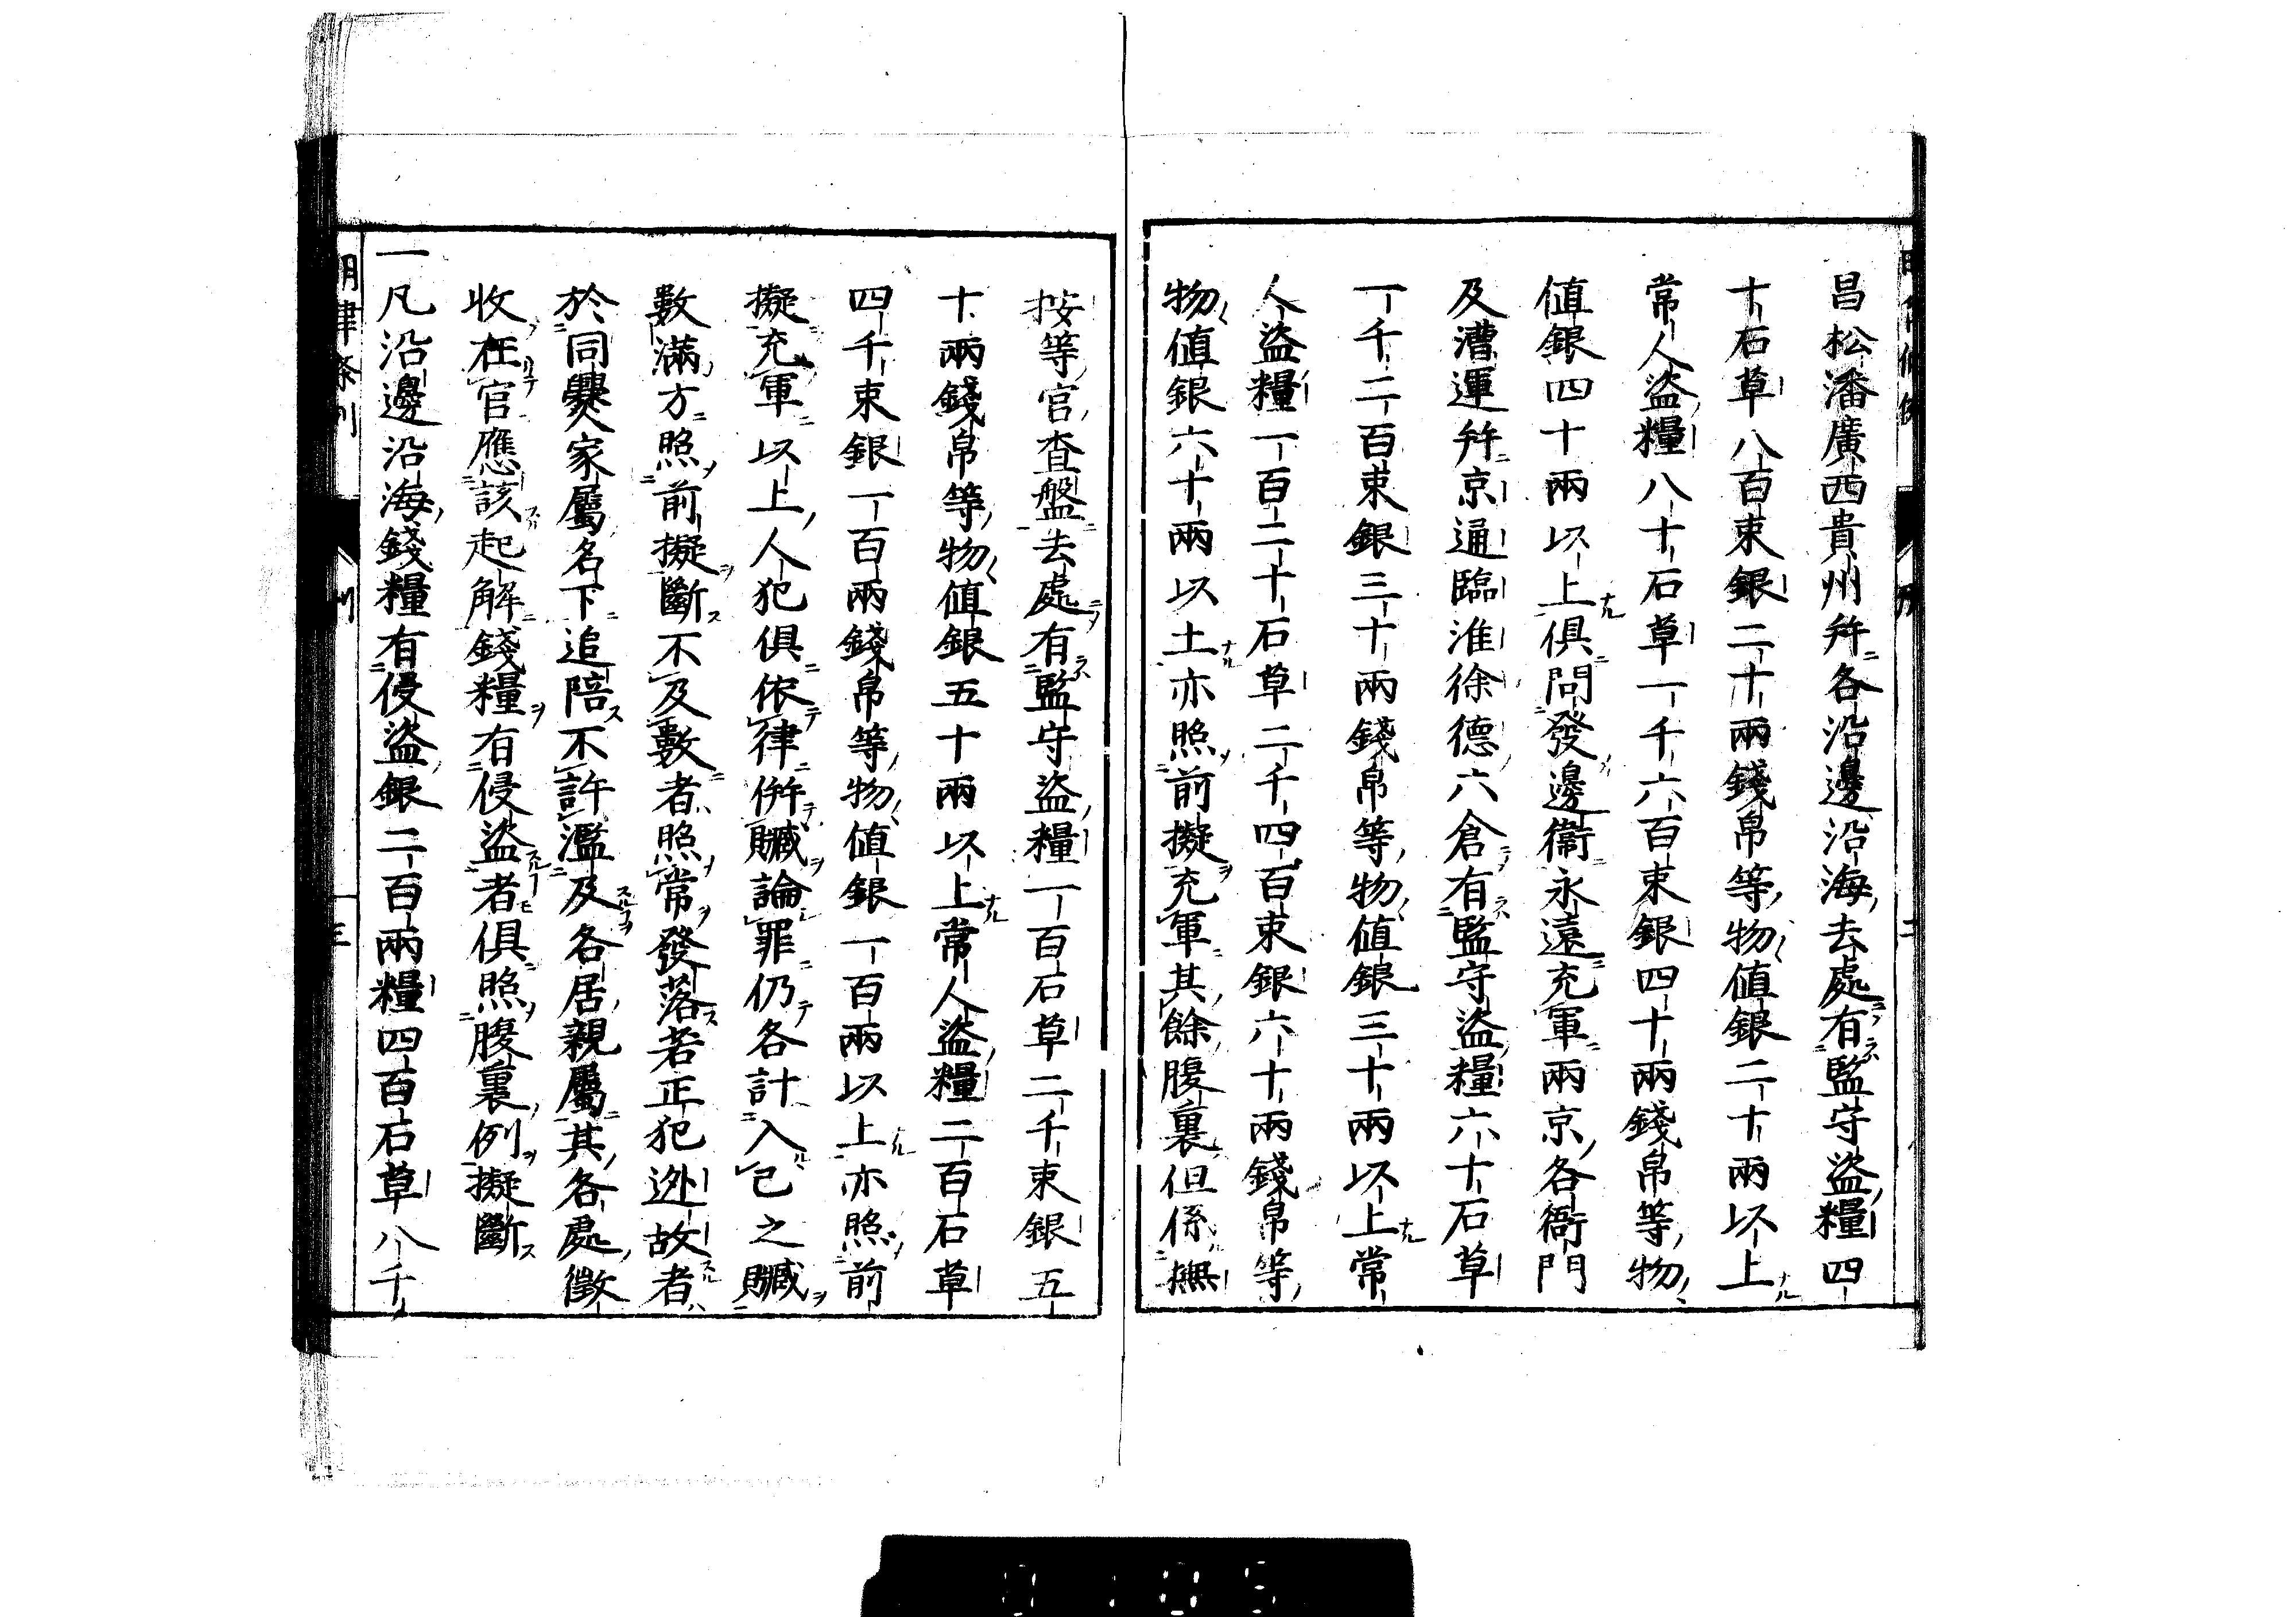 昌松潘廣西貴州幷各沿邊沿海去處有監守盜糧四
十石草八百束銀二十兩錢帛等物値銀二十兩以上
常人盜糧八十石草一千六百束銀四十兩錢帛等物
値銀四十兩以上俱問發邊衞永遠充軍兩京各衙門
及漕運幷京通臨淮徐德六倉有監守盜糧六十石草
一千二百束銀三十兩錢帛等物値銀三十兩以上常
人盜糧一百二十石草二千四百束銀六十兩錢帛等
物値銀六十兩以上亦照前擬充軍其餘腹裏但係撫
按等官査盤去處有監守盜糧一百石草二千束銀五
十兩錢帛等物値銀五十兩以上常人盜糧二百石草
四千束銀一百兩錢帛等物値銀一百兩以上亦照前
擬充軍以上人犯俱依律併贓論罪仍各計入己之贓
數滿方照前擬斷不及數者照常發落若正犯迯故者
於同爨家屬名下追陪不許濫及各居親屬其各處徵
收在官應該起解錢糧有侵盜者俱照腹裏例擬斷
一凡沿邊沿海錢糧有侵盜銀二百兩糧四百石草八千
明律条例
三